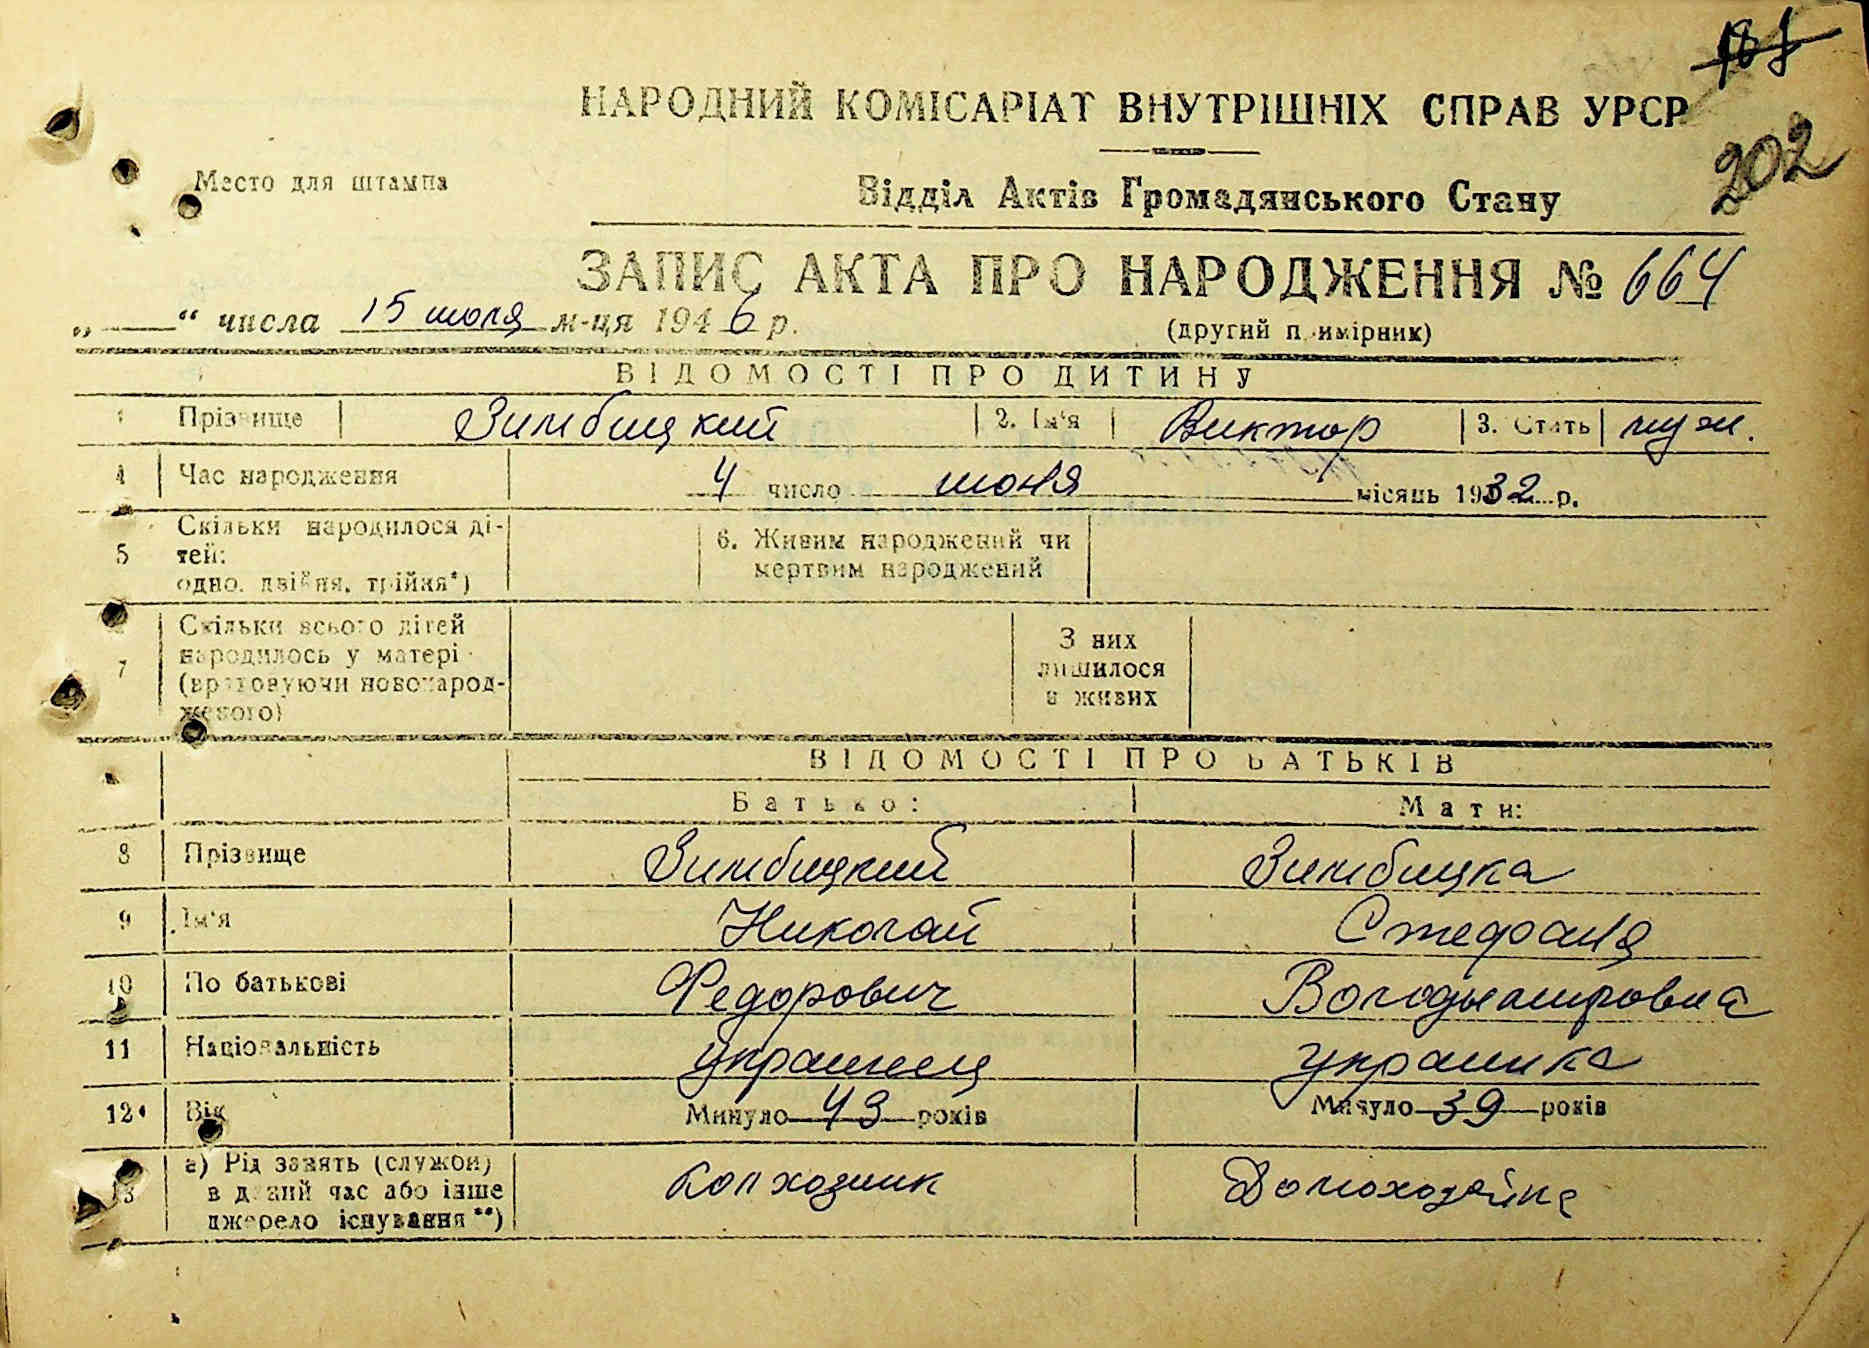 НАРОДНИЙ КОМІСАРІАТ ВНУТРІШНІХ СПРАВ УРСР
202
Место для штампа
Відділ Актів Громадянського Стану
ЗАПИС АКТА ПРО НАРОДЖЕННЯ № 664
„ “ числа 15 июля м-ця 1946 р.
(другий примірник)
ВІДОМОСТІ ПРО ДИТИНУ
1 Прізвище Зимбицкий 2. Ім'я Виктор 3. Стать муж.
4 Час народження 4 число июня місяць 1932 р.
5 Скільки народилося ді-
тей:
одно, двійня, трійня*)
6. Живим народжений чи
мертвим народжений
7 Скільки всього дітей
народилось у матері
(враховуючи новонарод-
женого)
З них
лишилося
в живих
ВІДОМОСТІ ПРО БАТЬКІВ
Батько: Мати:
8 Прізвище Зимбицкий Зимбицка
9 Ім'я Николай Стефания
10 По батькові Федорович Володымировна
11 Національність украинец украинка
12 Вік Минуло 43 років Минуло 39 років
13 а) Рід занять (служби)
в даний час або інше
джерело існування**)
Колхозник Домохозяйка